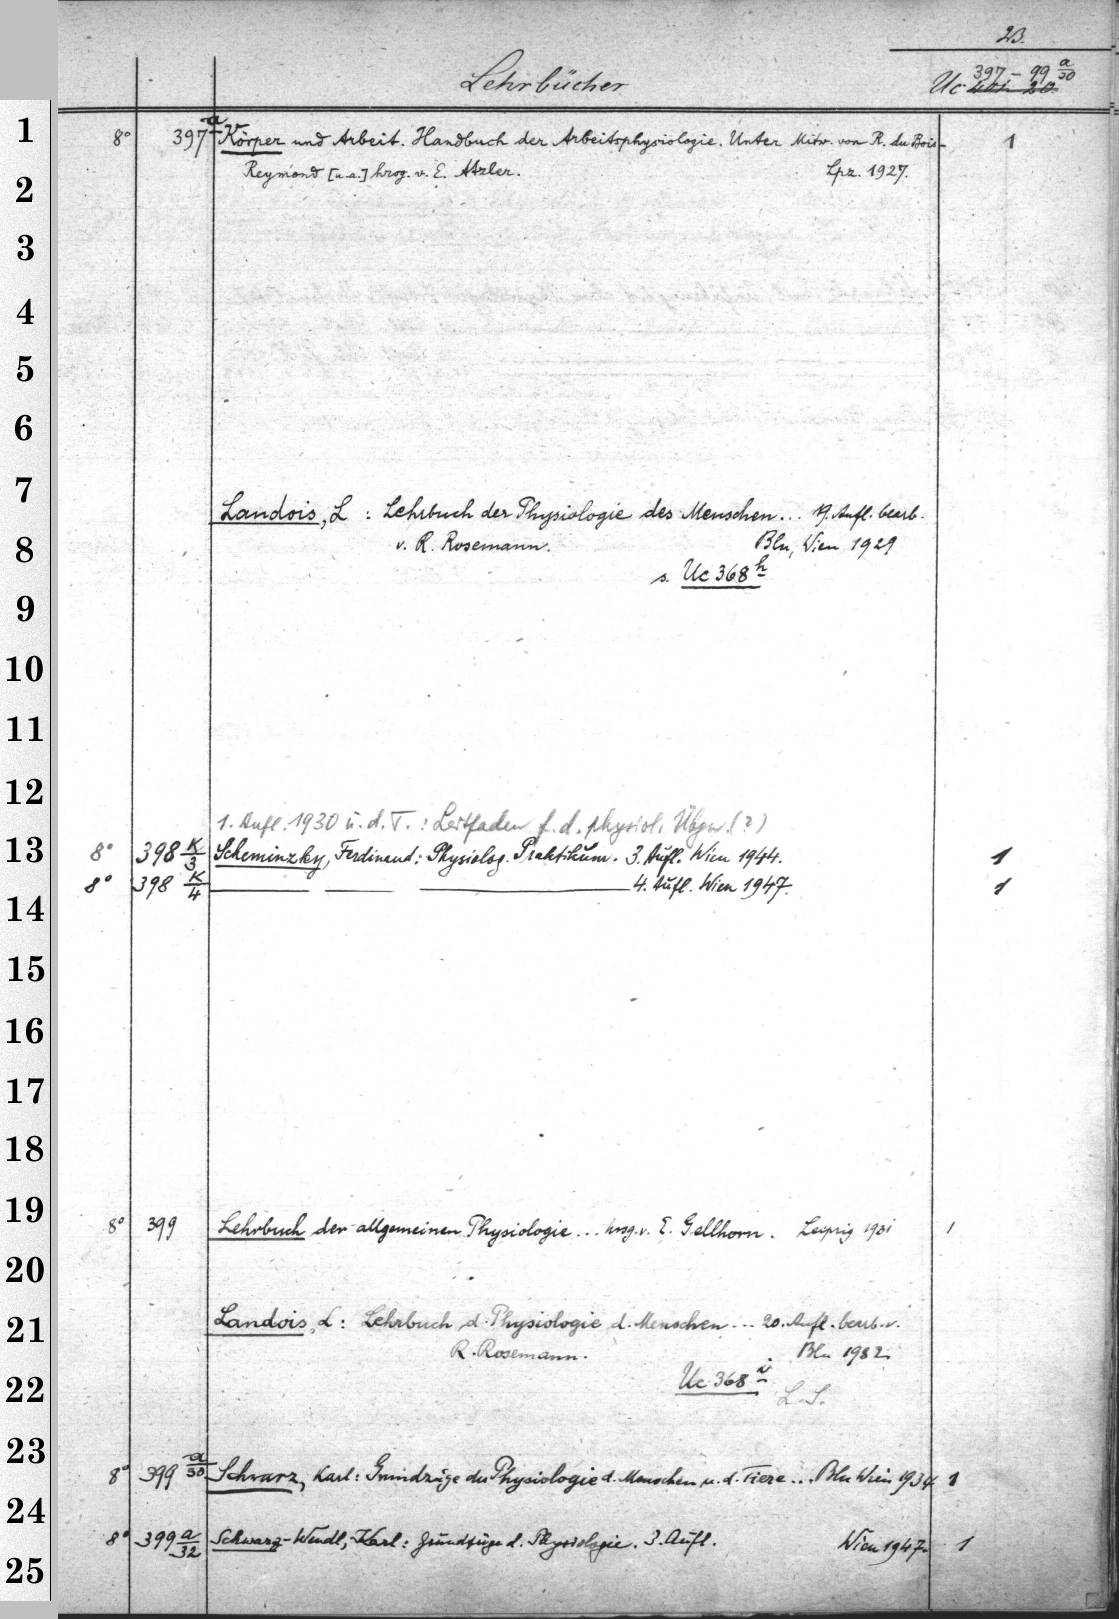 23.
Lehrbücher
Uc 397 – 99 a/30
1
8° 397 a Körper und Arbeit. Handbuch der Arbeitsphysiologie. Unter Mitw. von R. du Bois- 1
Reymond [u. a.] hrsg. v. E. Atzler. Lpz. 1927.
2
3
4
5
6
7
Landois, L : Lehrbuch der Physiologie des Menschen... 19. Aufl. bearb.
8
v. R. Rosemann. Bln, Wien 1929
s. Uc 368 h
9
10
11
12
1. Aufl. 1930 u. d. T. : Leitfaden f. d. physiol. Übgn (?)
13
8° 398 K/3 Scheminzky, Ferdinand: Physiolog. Praktikum. 3. Aufl. Wien 1944. 1
8° 398 K/4 4. Aufl. Wien 1947. 1
14
15
16
17
18
19
8° 399 Lehrbuch der allgemeinen Physiologie... hrsg. v. E. Gellhorn. Leipzig 1931 1
20
21
Landois, L: Lehrbuch d. Physiologie d. Menschen... 20. Aufl. bearb. v.
R. Rosemann. Bln 1932.
22
Uc 368 i
L. S.
23
8° 399 a/30 Schwarz, Karl: Grundzüge der Physiologie d. Menschen u. d. Tiere... Bln Wien 1934 1
24
8° 399 a/32 Schwarz-Wendl, Karl: Grundzüge d. Physiologie. 3. Aufl. Wien 1947. 1
25